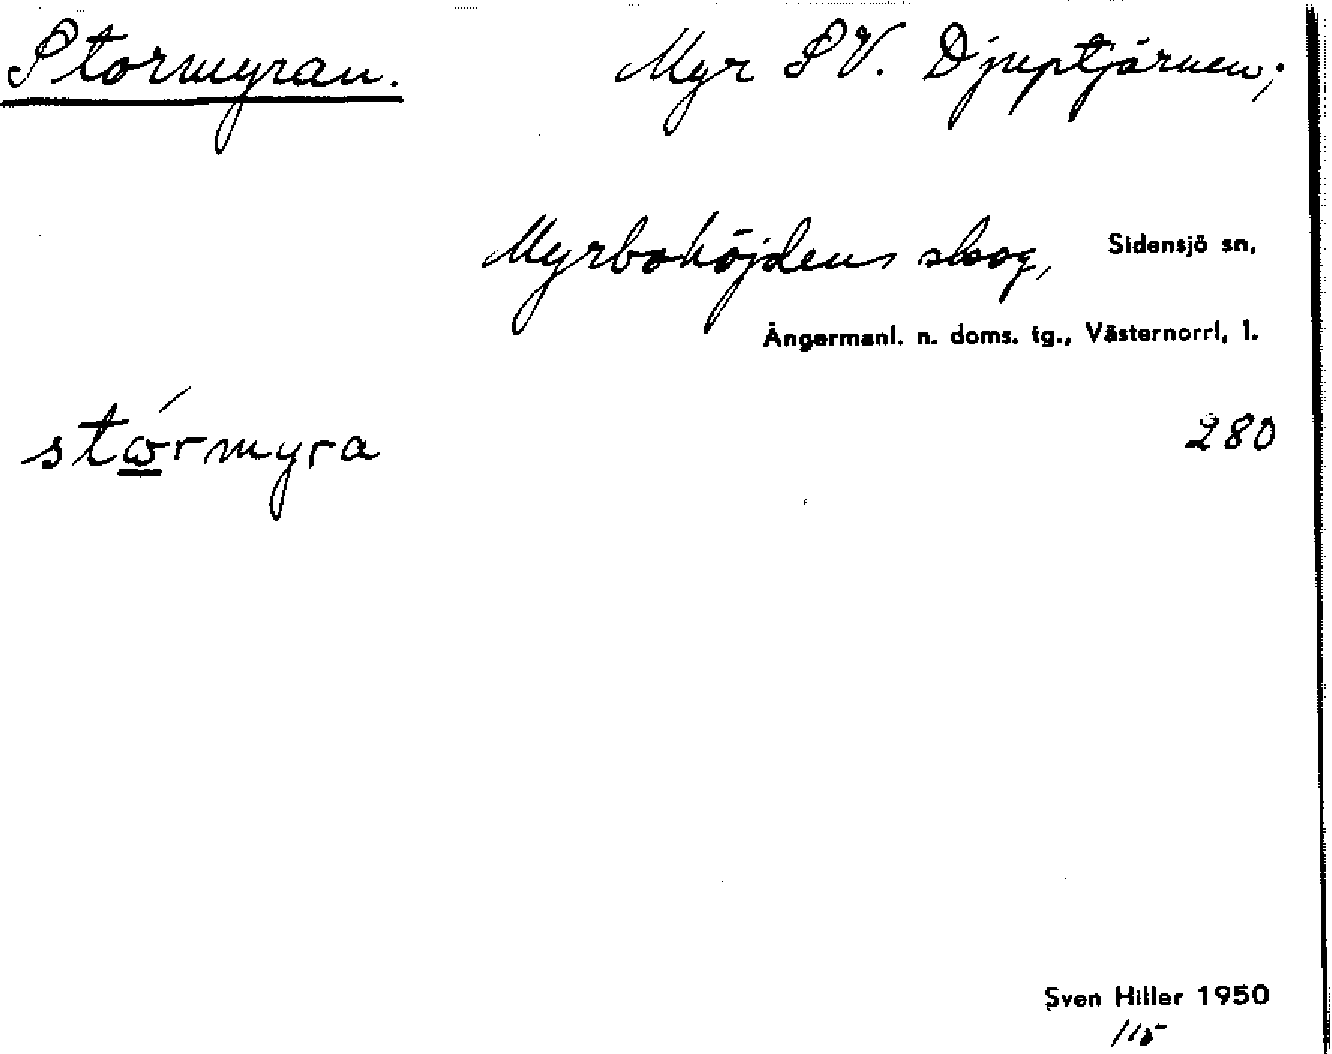 Stormyran. Myr SV. Djuptjärnen;
Myrbohöjdens skog, Sidensjö sn,
Ångermanl. n. doms. tg., Västernorrl. l.
stώrmyra 280
Sven Hiller 1950